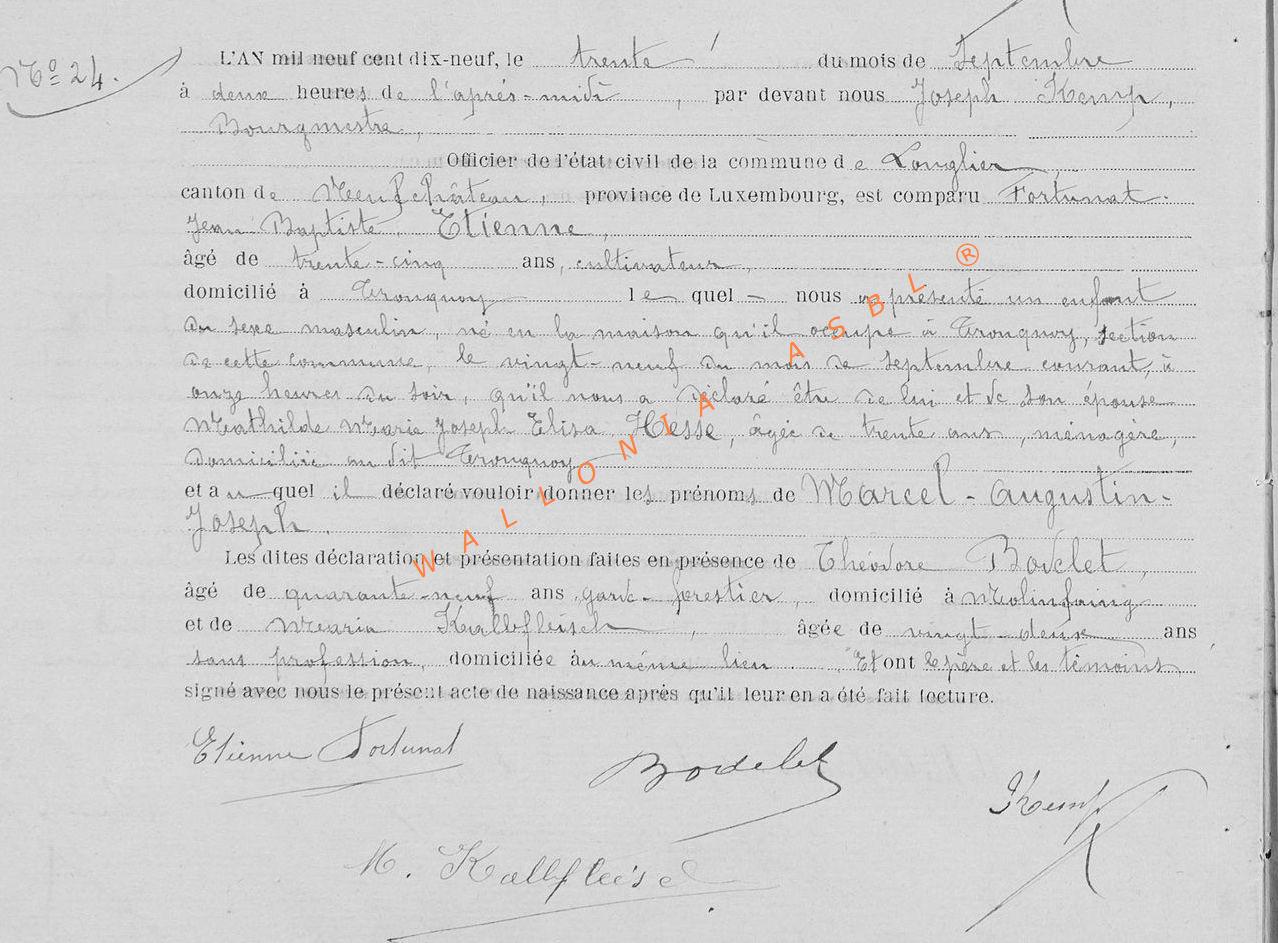 Nº 24.
L'AN mil neuf cent dix-neuf, le trente du mois de Septembre
à deux heures de l'après-midi, par devant nous Joseph Kemp,
Bourgmestre,
Officier de l'état civil de la commune de Longlier,
canton de Neufchâteau, province de Luxembourg, est comparu Fortunat
Jean Baptiste Etienne,
âgé de trente-cinq ans, cultivateur,
domicilié à Tronquoy lequel nous a présenté un enfant
du sexe masculin, né en la maison qu'il occupe à Tronquoy, section
de cette commune, le vingt-neuf du mois de septembre courant, à
onze heures du soir, qu'il nous a déclaré être de lui et de son épouse
Mathilde Marie Joseph Elisa Hesse, âgée de trente ans, ménagère,
domiciliée au dit Tronquoy
et auquel il déclaré vouloir donner les prénoms de Marcel-Augustin-
Joseph.
Les dites déclaration et présentation faites en présence de Théodore Bodelet,
âgé de quarante-neuf ans, garde-forestier, domicilié à Molinfaing
et de Maria Kalbfleisch, âgée de vingt-deux ans
sans profession, domiciliée au même lieu. Et ont le père et les témoins
signé avec nous le présent acte de naissance après qu'il leur en a été fait lecture.
Etienne Fortunat
Bodelet
Kemp
M. Kalbfleisch
WALLONIA ASBL ®